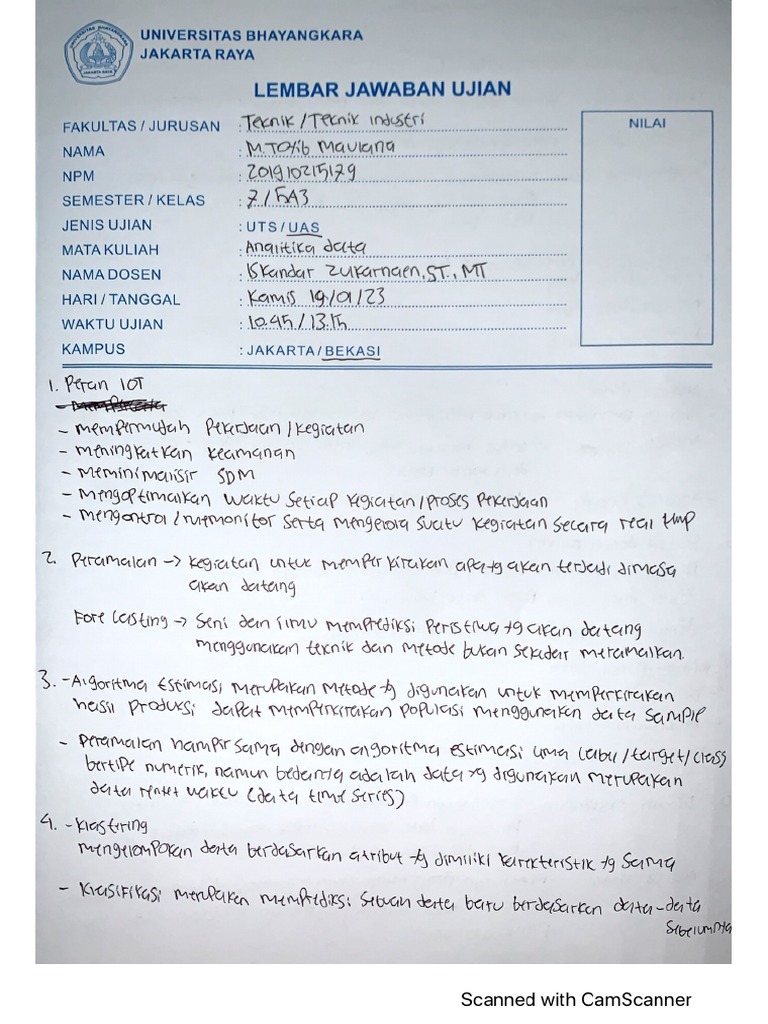 UNIVERSITAS BHAYANGKARA
JAKARTA RAYA
LEMBAR JAWABAN UJIAN
FAKULTAS / JURUSAN : Teknik / Teknik industri
NAMA : M.Totib Maulana
NPM : 201910215179
SEMESTER / KELAS : 7 / 5A3
JENIS UJIAN : UTS / UAS
MATA KULIAH : Analitika data
NAMA DOSEN : Iskandar Zukarnaen, ST., MT
HARI / TANGGAL : Kamis 19/01/23
WAKTU UJIAN : 10.45 / 13.15
KAMPUS : JAKARTA / BEKASI
NILAI
1. Peran IOT
- mempermudah Pekerjaan / kegiatan
- meningkatkan keamanan
- Meminimalisir SDM
- Mengoptimalkan waktu setiap kegiatan / proses Pekerjaan
- mengontrol / memonitor serta mengelola suatu kegiatan secara real time
2. Peramalan → kegiatan untuk memperkirakan apa yg akan terjadi dimasa
akan datang
Fore casting → Seni dan ilmu memprediksi Peristiwa yg akan datang
menggunakan teknik dan metode bukan sekedar meramalkan.
3. - Algoritma Estimasi merupakan metode yg digunakan untuk memperkirakan
hasil produksi dapat memperkirakan populasi menggunakan data sample
- Peramalan hampir sama dengan algoritma estimasi / label / target / class
bertipe numerik, namun bedanya adalah data yg digunakan merupakan
data rentet waktu (data time series)
4. - Klastering
mengelompokan data berdasarkan atribut yg dimiliki karakteristik yg sama
- Klasifikasi merupakan memprediksi sebuah data baru berdasarkan data-data
sebelumnya
Scanned with CamScanner